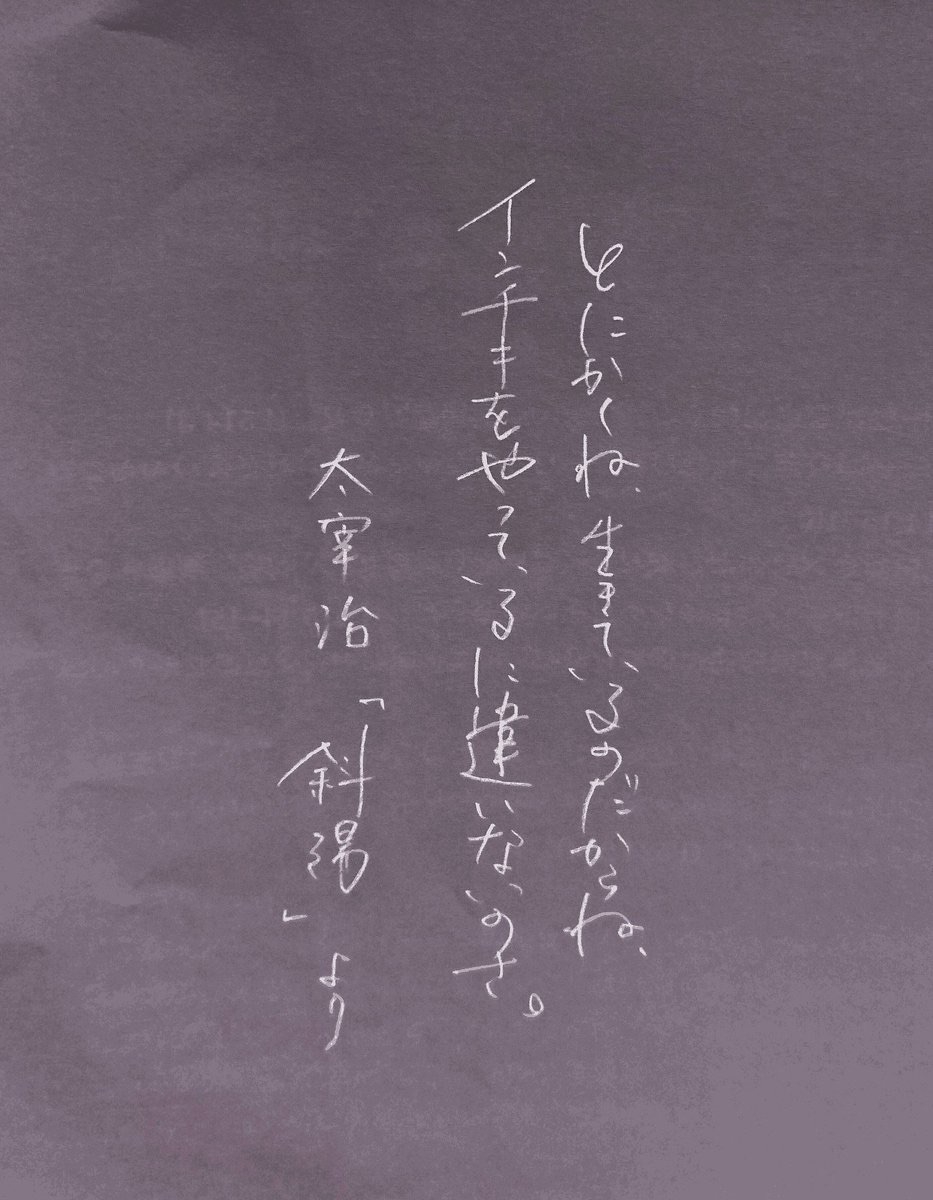 とにかくね、生きているのだからね、
インチキをやっているに違いないのさ。
太宰治「斜陽」より